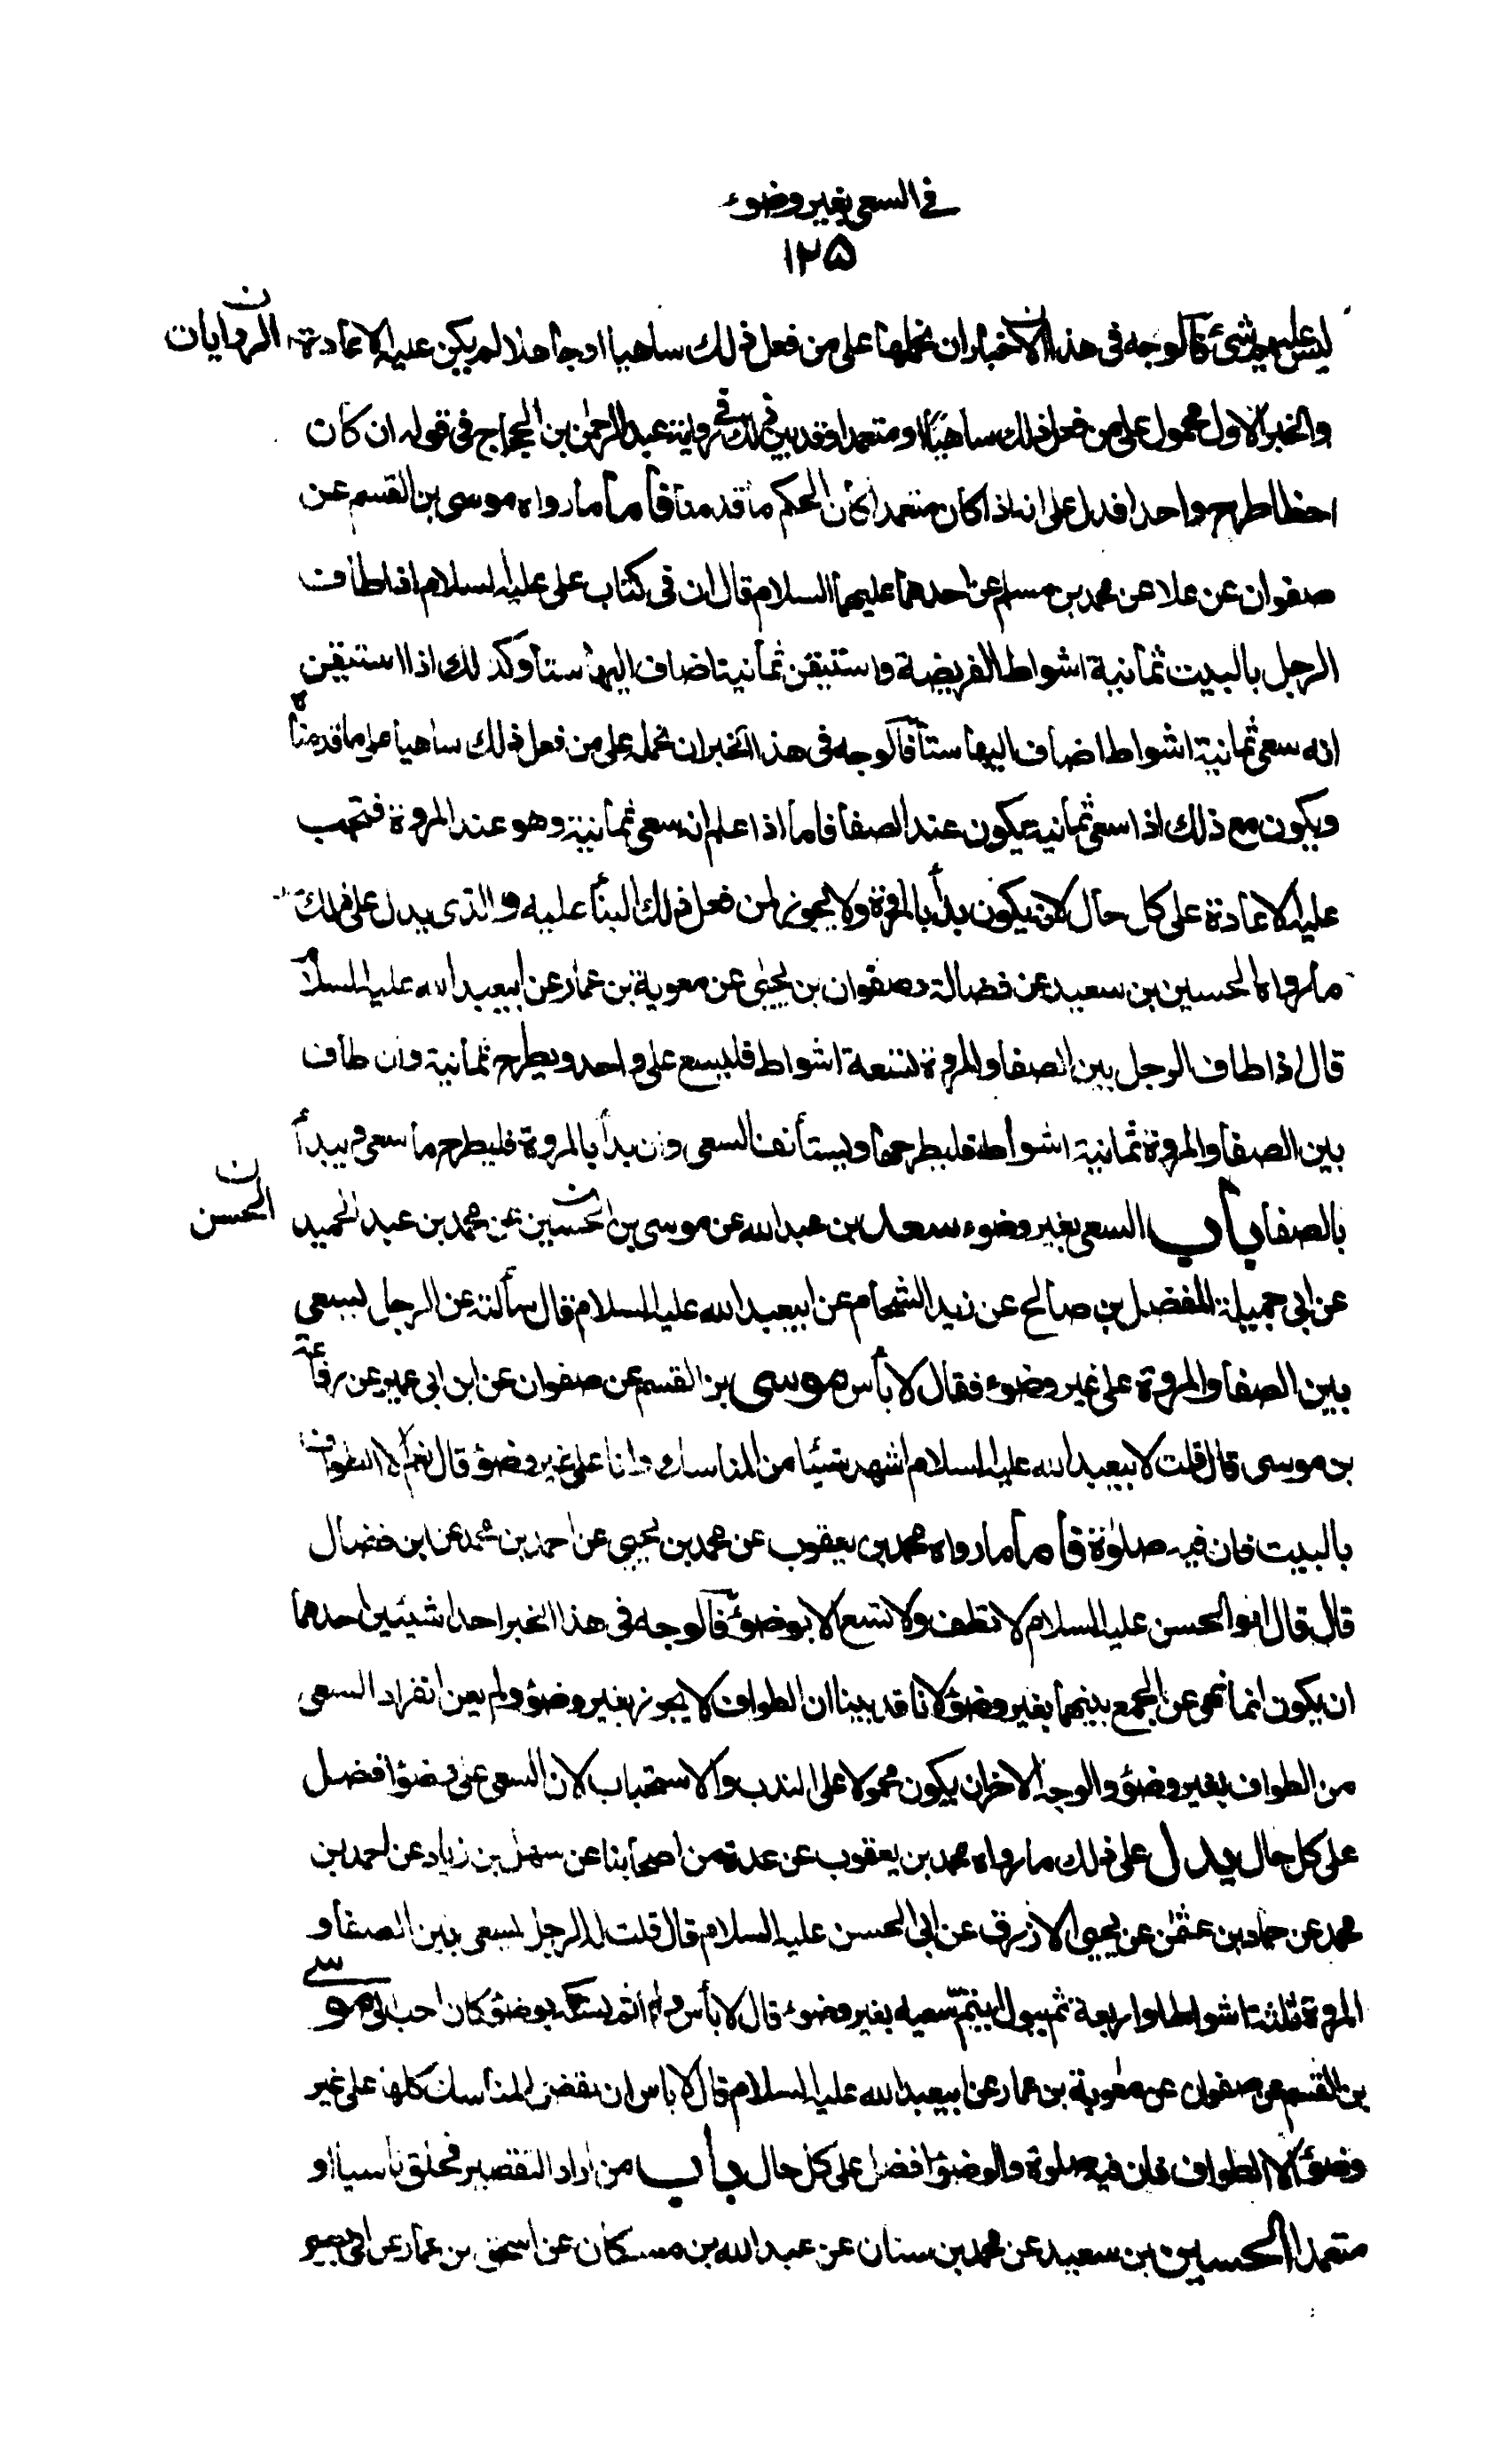 في السعي بغير وضوء
١٢۵
ليس عليهم شئ فالوجه في هذه الاخبار ان نحملها على من فعل ذلك ساهيا او جاهلا لم يكن عليه الاعادة الروايات ن
والخبر الاول محمول على من فعل ذلك ساهيا او متعمدا وقد بين ذلك في رواية عبد الرحمن بن الحجاج في قوله ان كان
اخطا طرح واحدا فدل على انه اذا كان متعمدا كان الحكم ما قدمنا فأما ما رواه موسى بن القسم عن
صفوان عن علا عن محمد بن مسلم عن احدهما عليهما السلام قال ان في كتاب على عليه السلام اذا طاف
الرجل بالبيت ثمانية اشواط الفريضة واستيقن ثمانية اضاف اليها ستا وكذلك اذا استيقن
انه سعى ثمانية اشواط اضاف اليها ستا فالوجه في هذا الخبر ان نحمله على من فعل ذلك ساهيا على ما قدمناه
ويكون مع ذلك اذا سعى ثمانية يكون عند الصفا فاما اذا علم انه سعى ثمانية وهو عند المروة فتجب
عليه الاعادة على كل حال لانه يكون بدأ بالمروة ولا يجوز لمن فعل ذلك البنأ عليه والذى يدل على ذلك
ما رواه الحسين بن سعيد عن فضالة وصفوان بن يحيى عن معوية بن عمار عن ابيعبد الله عليه السلام
قال اذا طاف الرجل بين الصفا والمروة تسعة اشواط فليسع على واحد ويطرح ثمانية وان طاف
بين الصفا والمروة ثمانية اشواط فليطرحها وليستأنف السعى وان بدأ بالمروة فليطرح ما سعى ويبدأ
بالصفا باب السعى بغير وضوء سعد بن عبد الله عن موسى بن الحسين عن محمد بن عبد الحميد الحسن ن
عن ابى جميلة المفضل بن صالح عن زيد الشحام عن ابيعبد الله عليه السلام قال سألته عن الرجل يسعى
بين الصفا والمروة على غير وضوء فقال لا بأس موسى بن القسم عن صفوان عن ابن ابى عمير عن رفاعة
بن موسى قال قلت لابيعبد الله عليه السلام اشهد شيئا من المناسك وانا على غير وضوء قال نعم الا الطواف
بالبيت فان فيه صلوة فأما ما رواه محمد بن يعقوب عن محمد بن يحيى عن احمد بن محمد عن ابن فضال
قال قال ابو الحسن عليه السلام لا تطف ولا تسع الا بوضوء فالوجه في هذا الخبر احد شيئين احدهما
ان يكون انما نهى عن الجمع بينهما بغير وضوء لانا قد بينا ان الطواف لا يجوز بغير وضوء ولم يعن انفراد السعى
من الطواف بغير وضوء والوجه الاخر ان يكون محمولا على الندب والاستحباب لان السعى على وضوء افضل
على كل حال يدل على ذلك ما رواه محمد بن يعقوب عن عدة من اصحابنا عن سهل بن زياد عن احمد بن
محمد عن حماد بن عثمن عن يحيى الازرق عن ابى الحسن عليه السلام قال قلت له الرجل يسعى بين الصفا و
المروة ثلثة اشواط او اربعة ثم يبول ايتم سعيه بغير وضوء قال لا بأس ولو اتم نسكه بوضوء كان احب الى موسى
بن القسم عن صفوان عن معوية بن عمار عن ابيعبد الله عليه السلام قال لا باس ان تقضى المناسك كلها على غير
وضوء الا الطواف فان فيه صلوة والوضوء افضل على كل حال باب من اراد التقصير فحلق ناسيا او
متعمدا الحسين بن سعيد عن محمد بن سنان عن عبد الله بن مسكان عن اسحق بن عمار عن ابى بصير